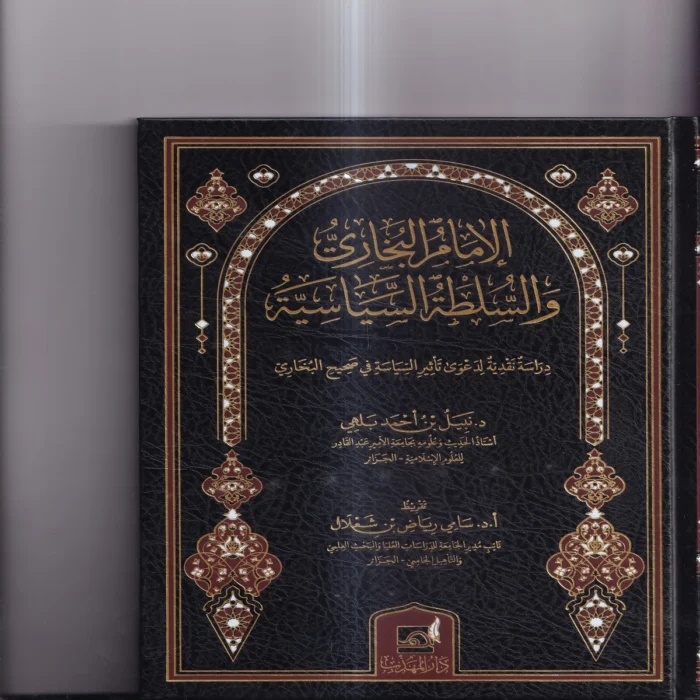 الإمام البخاري
والسلطة السياسية
دراسة نقدية لدعوى تأثير السياسة في صحيح البخاري
د. نبيل بن أحمد بلهي
أستاذ الحديث وعلومه بجامعة الأمير عبد القادر
للعلوم الإسلامية - الجزائر
تقريظ
أ.د. سامي رياض بن شعلال
نائب مدير الجامعة للدراسات العليا والبحث العلمي
والتأهيل الجامعي - الجزائر